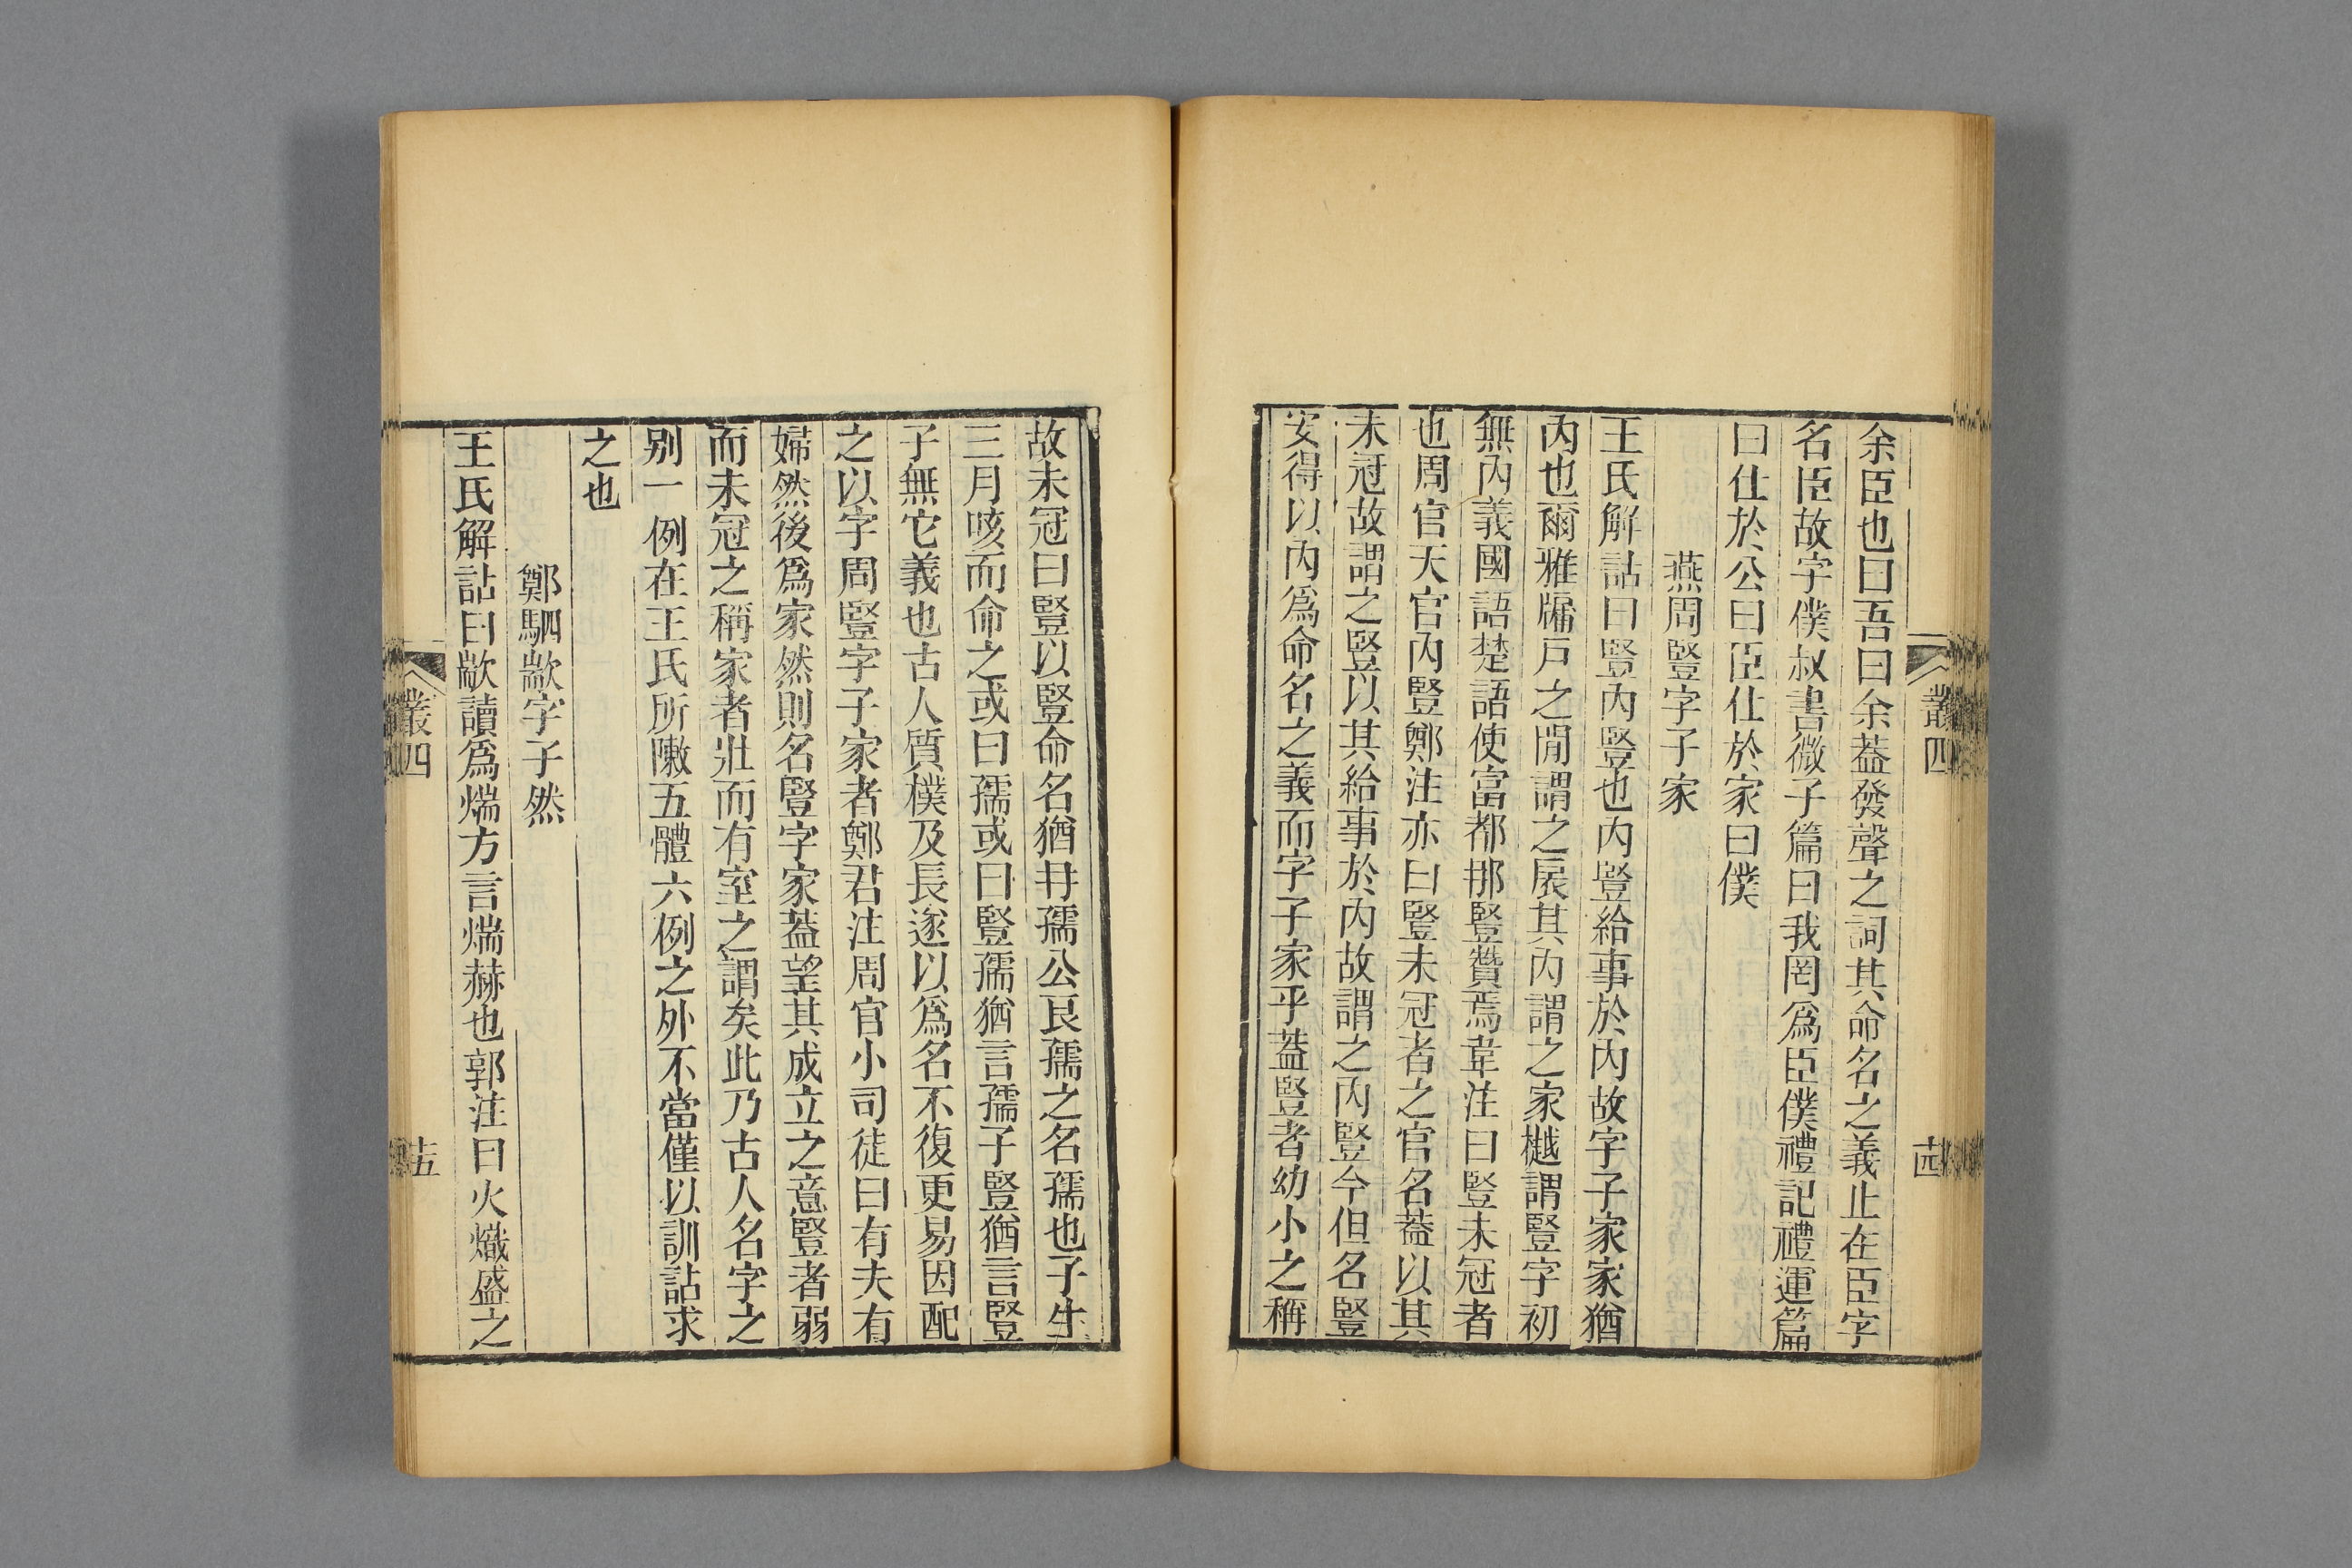 叢四
十四
余臣也曰吾曰余葢發聲之詞其命名之義止在臣字
名臣故字僕叔書微子篇曰我罔爲臣僕禮記禮運篇
曰仕於公曰臣仕於家曰僕
燕周豎字子家
王氏解詁曰豎內豎也內豎給事於內故字子家家猶
內也爾雅牖戶之閒謂之扆其內謂之家樾謂豎字初
無內義國語楚語使富都那豎贊焉韋注曰豎未冠者
也周官天官內豎鄭注亦曰豎未冠者之官名葢以其
未冠故謂之豎以其給事於內故謂之內豎今但名豎
安得以內爲命名之義而字子家乎葢豎者幼小之稱
故未冠曰豎以豎命名猶冄孺公良孺之名孺也子生
三月咳而命之或曰孺或曰豎孺猶言孺子豎猶言豎
子無它義也古人質樸及長遂以爲名不復更易因配
之以字周豎字子家者鄭君注周官小司徒曰有夫有
婦然後爲家然則名豎字家葢望其成立之意豎者弱
而未冠之稱家者壯而有室之謂矣此乃古人名字之
别一例在王氏所敶五體六例之外不當僅以訓詁求
之也
鄭駟歂字子然
王氏解詁曰歂讀爲煓方言煓赫也郭注曰火熾盛之
叢四
十五